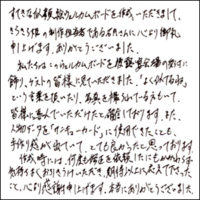 すてきな似顔絵ウェルカムボードを作成いただきまして、
きらきら様の制作担当者である石月さんに心より御礼
申し上げます。ありがとうございました。
私たちはこのウェルカムボードを披露宴会場の受付に
飾り、ゲストの皆様に見ていただきました。「よく似てるね」
という言葉を頂いたり、写真を撮っている方もいて、
皆様に喜んでいただけたと確信しております。また、
人物だけを「サンキューカード」に使用できたことも、
手作り感が出ていて、とても良かったと思っております。
作成時には、何度も修正を依頼したにもかかわらず
気持ちよくお引きうけいただき、期待以上に応えて下さった
こと、心より感謝申し上げます。本当にありがとうございました。